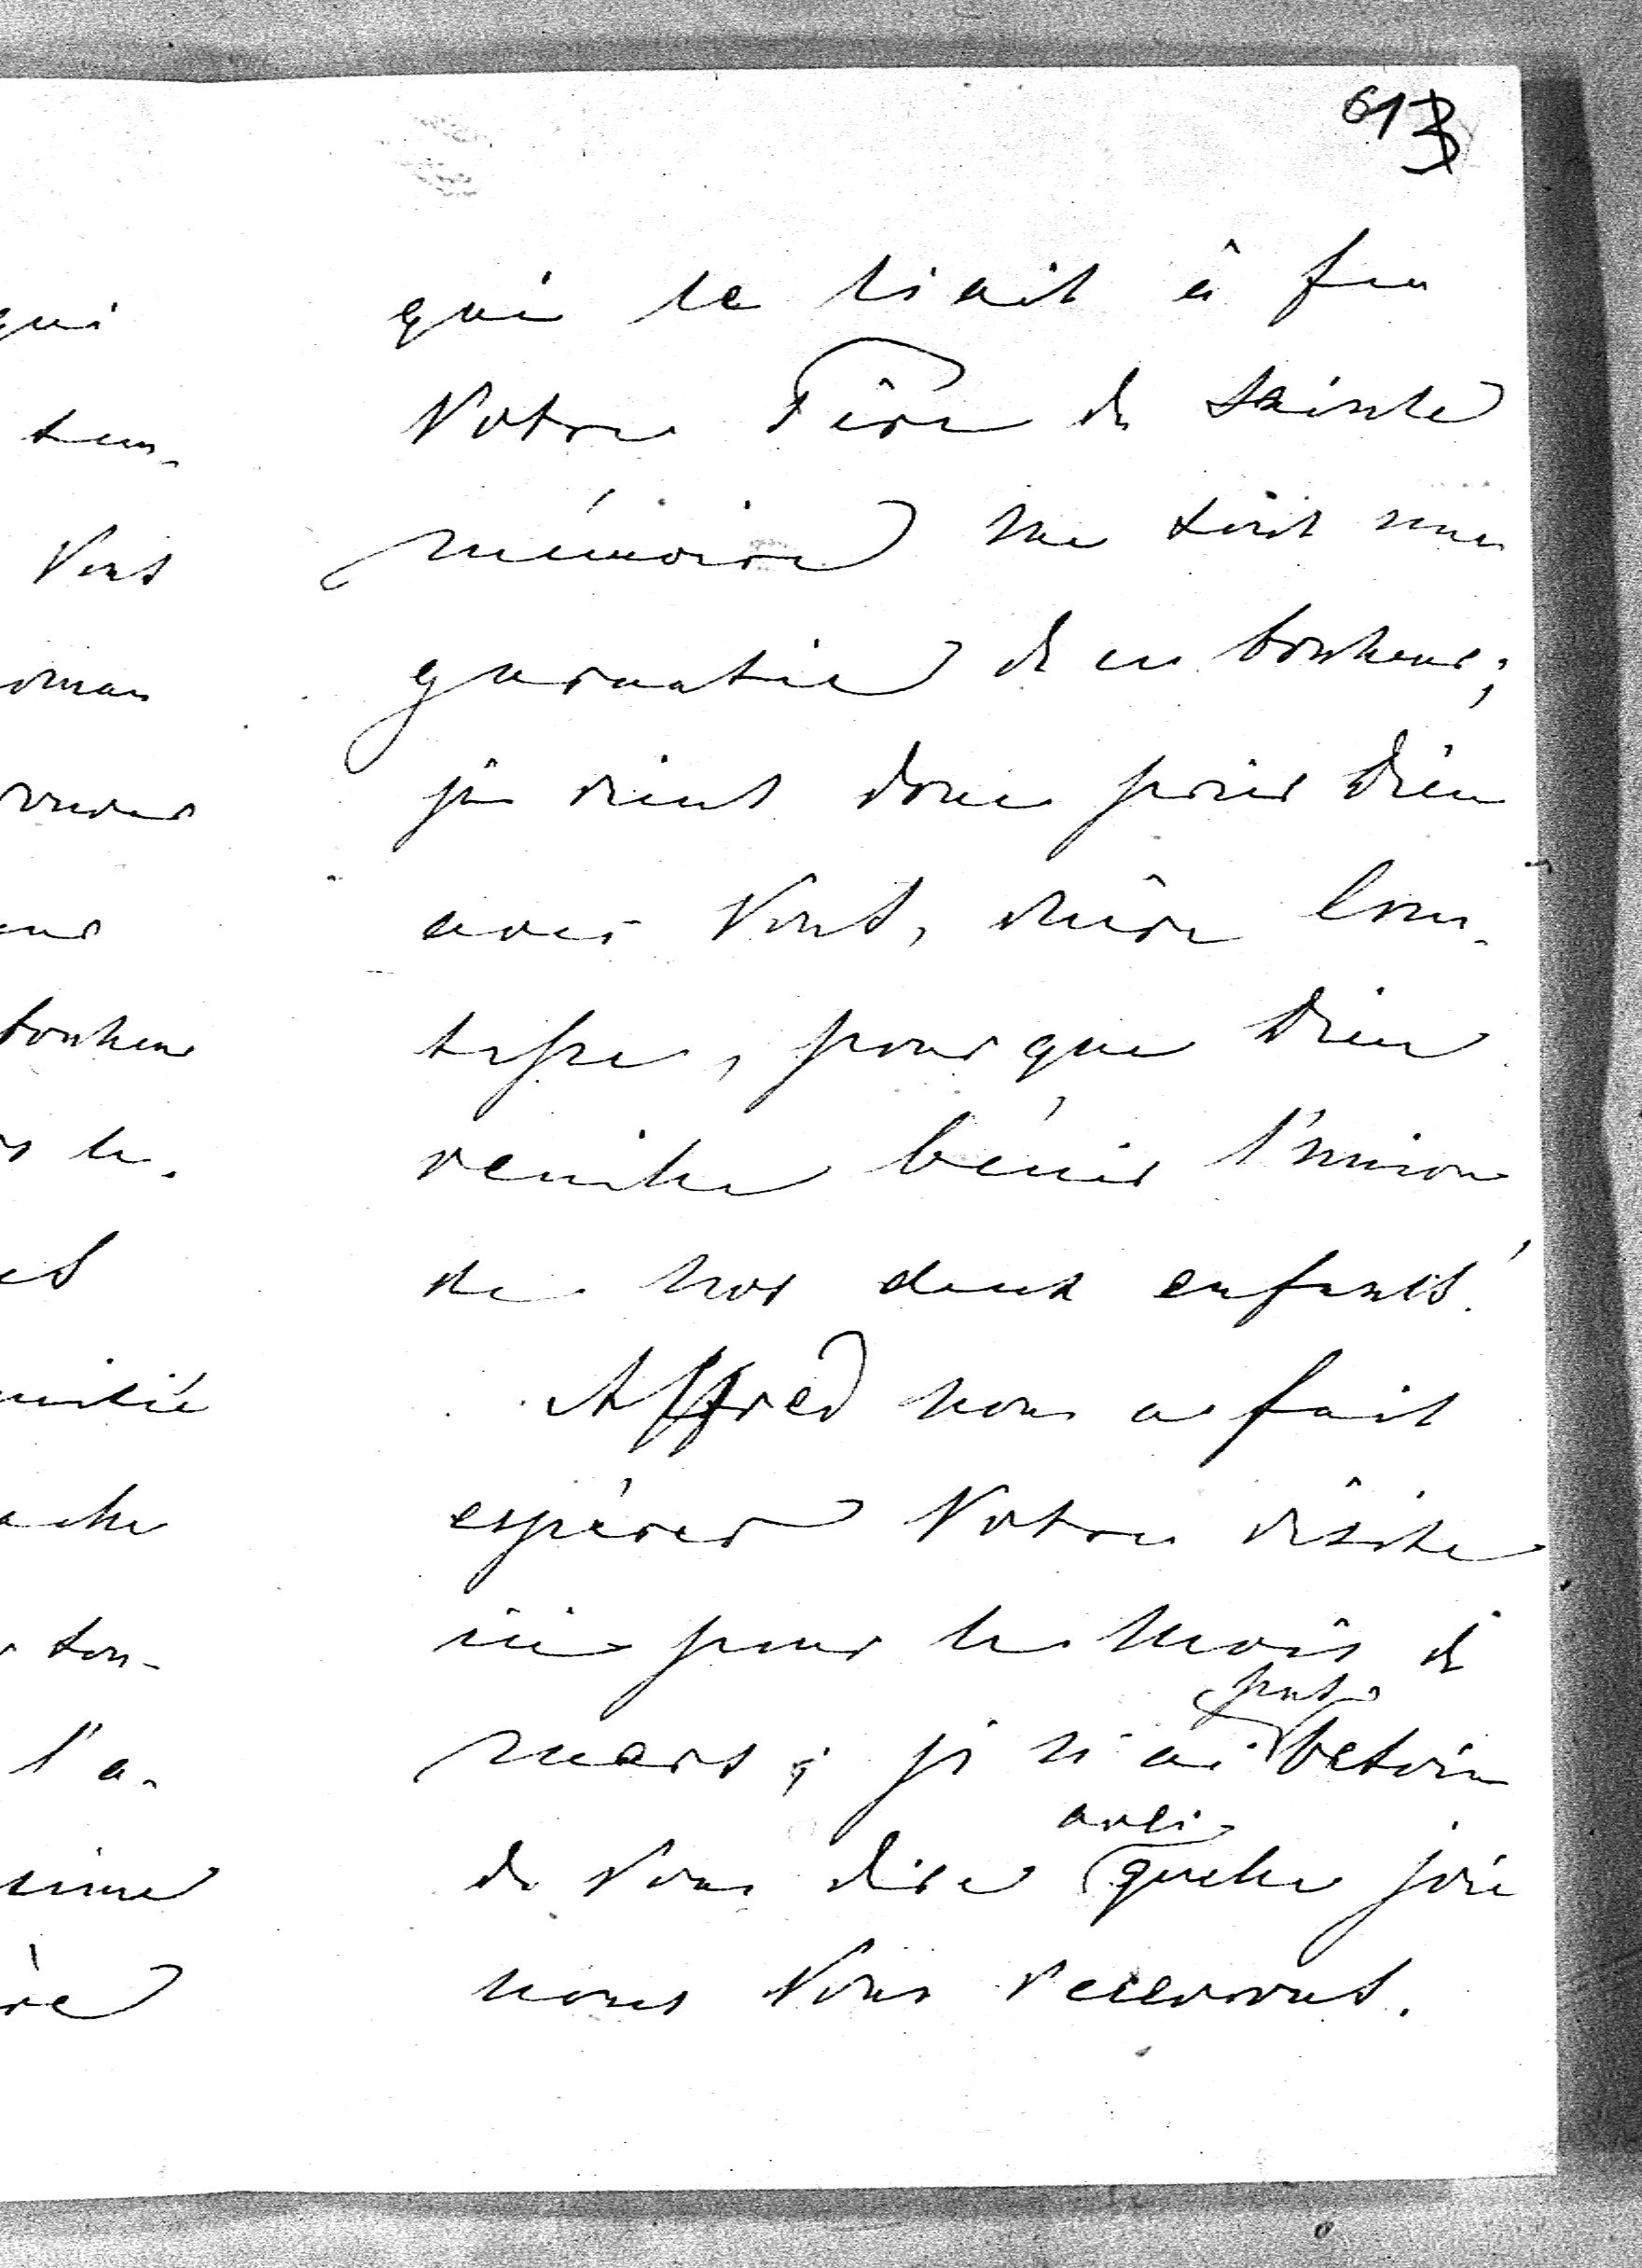 613
qui le liait à feu
Votre Père de sainte
mémoire me soit une
garantie de ce bonheur;
je viens donc prier Dieu
avec Vous, chère Com-
tesse, pour que Dieu
veuille bénir l'union
de nos deux enfants!
Alfred nous a fait
espérer Votre visite
ici pour le mois de
mars; je n'ai pas besoin
de Vous dire avec quelle joie
nous Vous recevrons.
qui
Vous
bonheur
et
l'a-